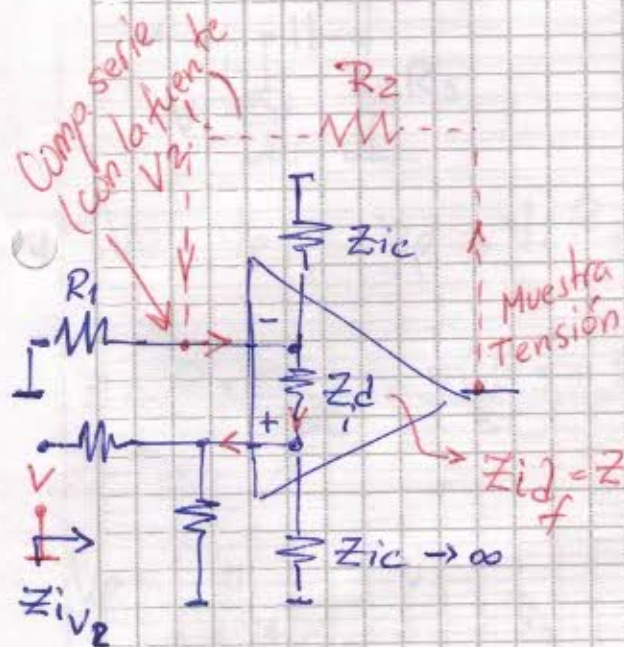 Comp. serie
(con la fuente
V2
R2
Zic
R1
-
Muestra
Tensión
Zid
+
Zidf = Z
V
Zic → ∞
ZiV2